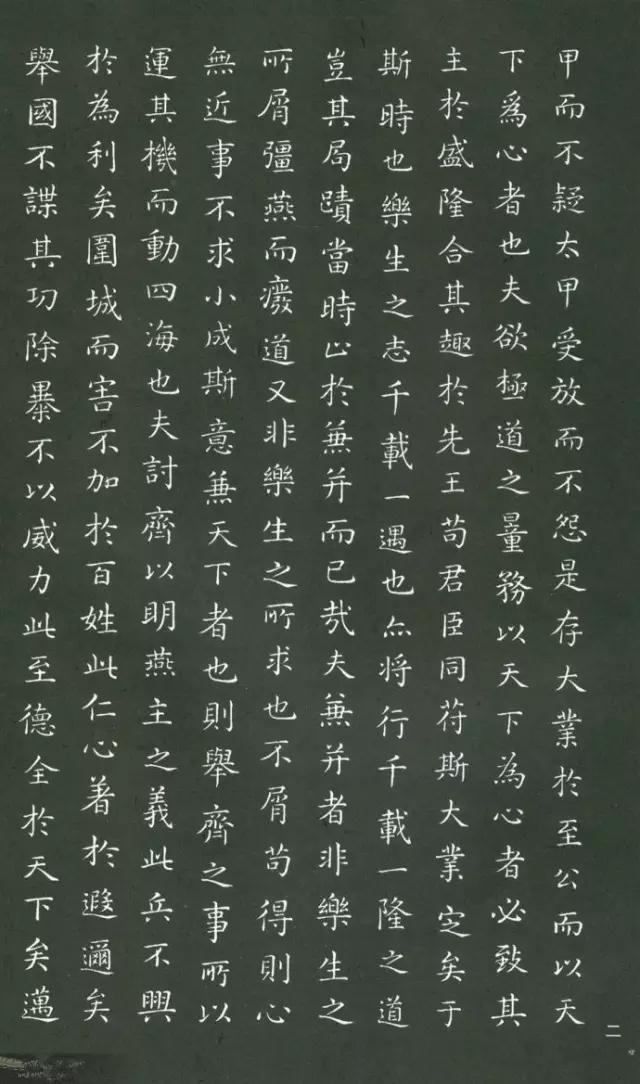 甲而不疑太甲受放而不怨是存大業於至公而以天
下爲心者也夫欲極道之量務以天下為心者必致其
主於盛隆合其趣於先王苟君臣同苻斯大業定矣于
斯時也樂生之志千載一遇也亦将行千載一隆之道
豈其局蹟當時止於兼并而已哉夫兼并者非樂生之
所屑彊燕而癈道又非樂生之所求也不屑苟得則心
無近事不求小成斯意兼天下者也則舉齊之事所以
運其機而動四海也夫討齊以明燕主之義此兵不興
於為利矣圍城而害不加於百姓此仁心著於遐邇矣
舉國不謀其功除暴不以威力此至德全於天下矣邁
二